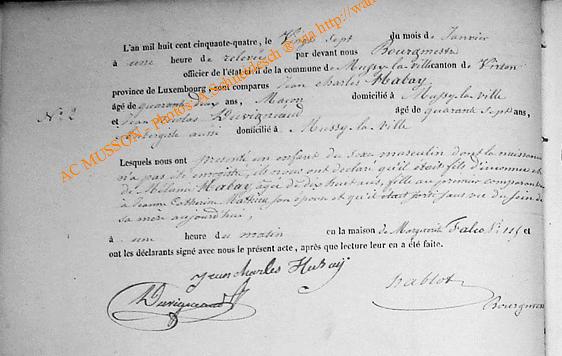 L'an mil huit cent cinquante-quatre, le Vingt Sept du mois de Janvier
à une heure de relevée par devant nous Bourgmestre
officier de l'état civil de la commune de Mussy-la-ville canton de Virton
province de Luxembourg, sont comparus Jean Charles Habay
N° 2
âgé de quarante ans, Maçon domicilié à Mussy-la-ville
et Jean Nicolas Duvigneaud âgé de quarante Sept ans,
aubergiste aussi domicilié à Mussy-la-Ville
Lesquels nous ont présenté un enfant du sexe masculin dont la naissance
n'a pas été enregistrée, ils nous ont déclaré qu'il était fils d'inconnu et
de Mélanie Habay, âgée de dix huit ans, fille au premier comparant
à Jeanne Catherine Mathieu son épouse et qu'il était sorti sans vie du sein de
sa mère aujourd'hui,
à une heure du matin en la maison de Marguerite Falco N° 115 et
ont les déclarants signé avec nous le présent acte, après que lecture leur en a été faite.
Jean Charles Habaÿ
Duvigneaud
Bourgmestre
AC MUSSON - Photos A. Schneidesch @ via http://www